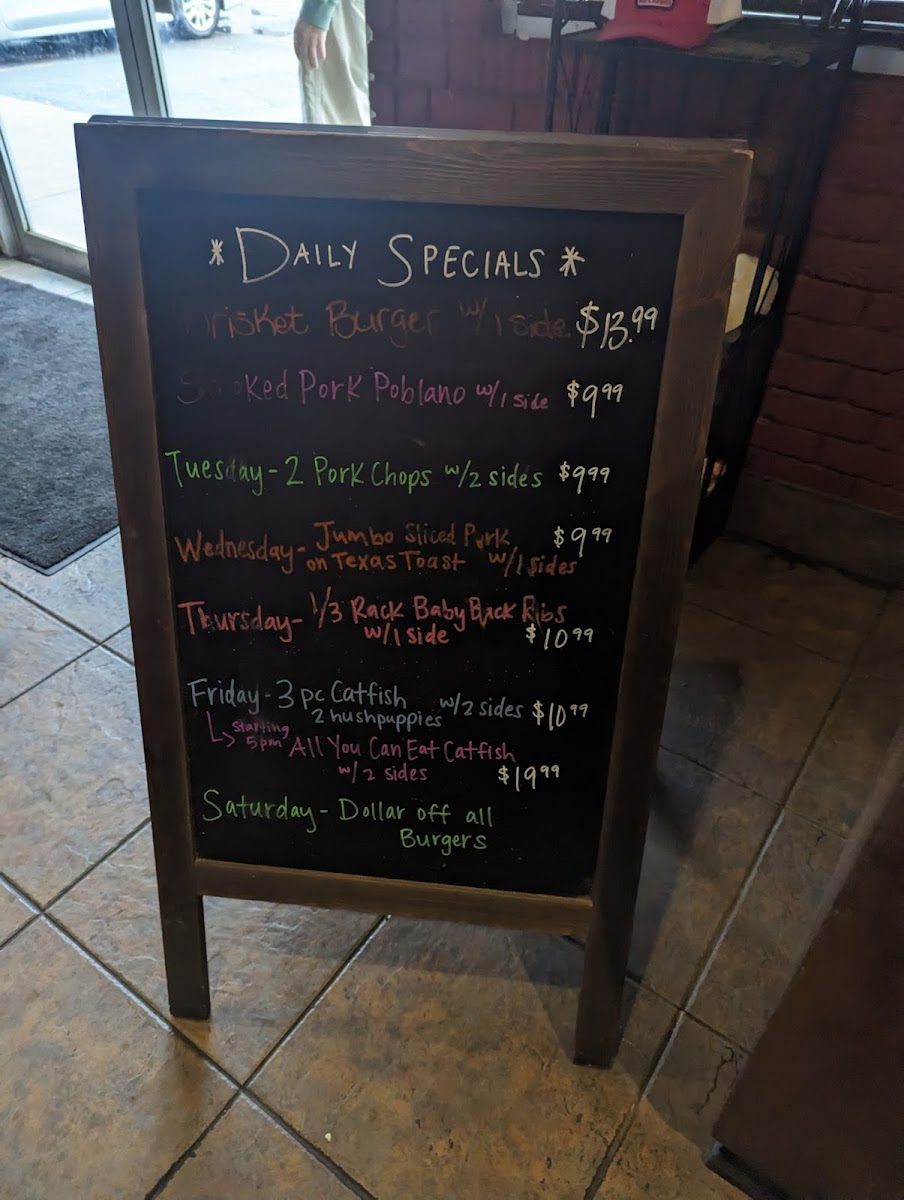 *DAILY SPECIALS*
Brisket Burger w/ 1 side $13.99
Smoked Pork Poblano w/ 1 side $9.99
Tuesday - 2 Pork Chops w/2 sides $9.99
Wednesday - Jumbo Sliced Pork $9.99
on Texas Toast w/1 sides
Thursday - 1/3 Rack Baby Back Ribs
w/1 side $10.99
Friday - 3 pc Catfish w/2 sides $10.99
2 hushpuppies
↳ starting
5pm All You Can Eat Catfish
w/ 2 sides $19.99
Saturday - Dollar off all
Burgers